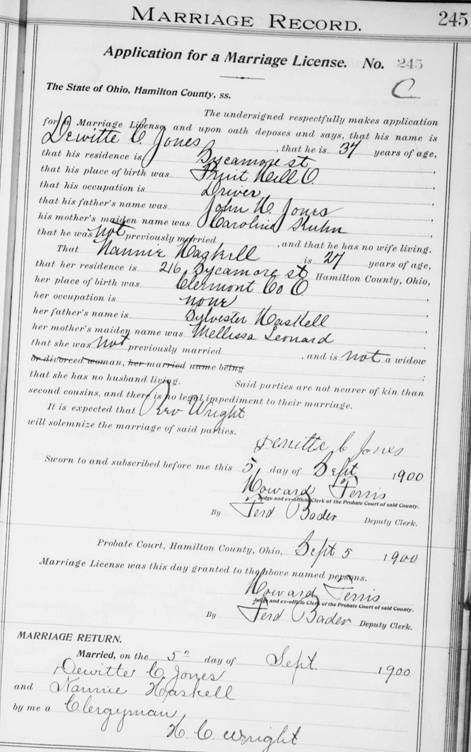 MARRIAGE RECORD. 245
Application for a Marriage License. No. 245
C
The State of Ohio, Hamilton County, ss.
The undersigned respectfully makes application
for a Marriage License and upon oath deposes and says, that his name is
Dewitte C Jones, that he is 37 years of age,
that his residence is Sycamore st
that his place of birth was Fruit Hill O.
that his occupation is Driver
that his father's name was John W. Jones
his mother's maiden name was Caroline Kuhn
that he was not previously married, and that he has no wife living.
That Nannie Haskell is 27 years of age,
that her residence is 216 Sycamore st Hamilton County, Ohio,
her place of birth was Clermont Co O
her occupation is none
her father's name is Sylvester Haskell
her mother's maiden name was Mellissa Leonard
that she was not previously married, and is not a widow
or divorced woman, her married name being
that she has no husband living. Said parties are not nearer of kin than
second cousins, and there is no legal impediment to their marriage.
It is expected that Rev Wright
will solemnize the marriage of said parties.
Dewitte C Jones
Sworn to and subscribed before me this 5 day of Sept 1900
Howard Ferris
Judge and ex-officio Clerk of the Probate Court of said County.
By Ferd Bader Deputy Clerk.
Probate Court, Hamilton County, Ohio, Sept 5 1900
Marriage License was this day granted to the above named persons.
Howard Ferris
Judge and ex-officio Clerk of the Probate Court of said County.
By Ferd Bader Deputy Clerk.
MARRIAGE RETURN.
Married, on the 5" day of Sept 1900
Dewitte C Jones
and Nannie Haskell
by me a Clergyman
H. C. Wright